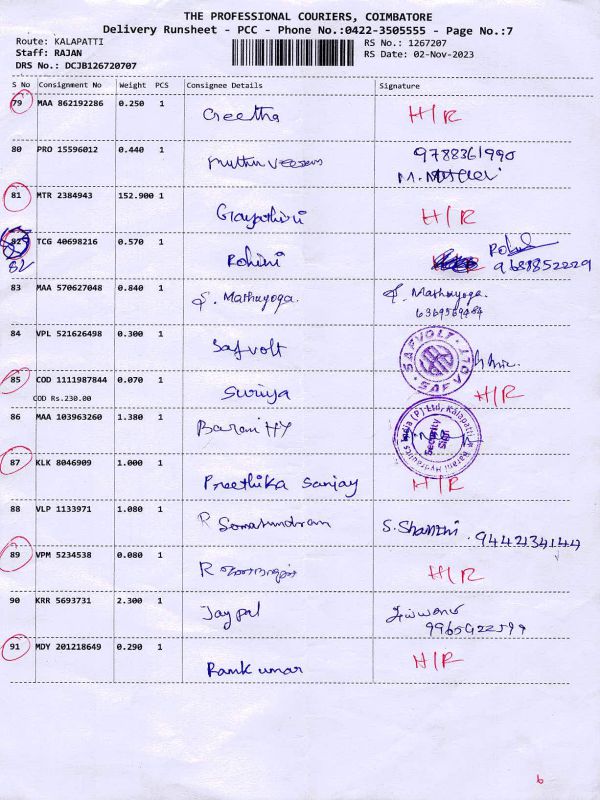 THE PROFESSIONAL COURIERS, COIMBATORE
Delivery Runsheet - PCC - Phone No.:0422-3505555 - Page No.:7
Route: KALAPATTI RS No.: 1267207
Staff: RAJAN RS Date: 02-Nov-2023
DRS No.: DCJB126720707
S No Consignment No Weight PCS Consignee Details Signature
79 MAA 862192286 0.250 1 Geetha H/R
80 PRO 15596012 0.440 1 9788361990
81 MTR 2384943 152.900 1 Gayathiri H/R
82 TCG 40698216 0.570 1 Rohini
82 9688852229
83 MAA 570627048 0.840 1 S. Mathuyoga. S. Mathuyoga.
84 VPL 521626498 0.300 1 Safvolt SAFVOLT
85 COD 1111987844 0.070 1 Suriya H/R
COD Rs.230.00
86 MAA 103963260 1.380 1 Barani HY Barani Hydraulics India (P) Ltd, Kalapatti
Security
Sign
87 KLK 8046909 1.000 1 Preethika Sanjay H/R
88 VLP 1133971 1.080 1 R Somasundram S. Shanthi . 9442134144
89 VPM 5234538 0.080 1 R H/R
90 KRR 5693731 2.300 1 Jaypal
9965922599
91 MDY 201218649 0.290 1 Ramkumar H/R
6